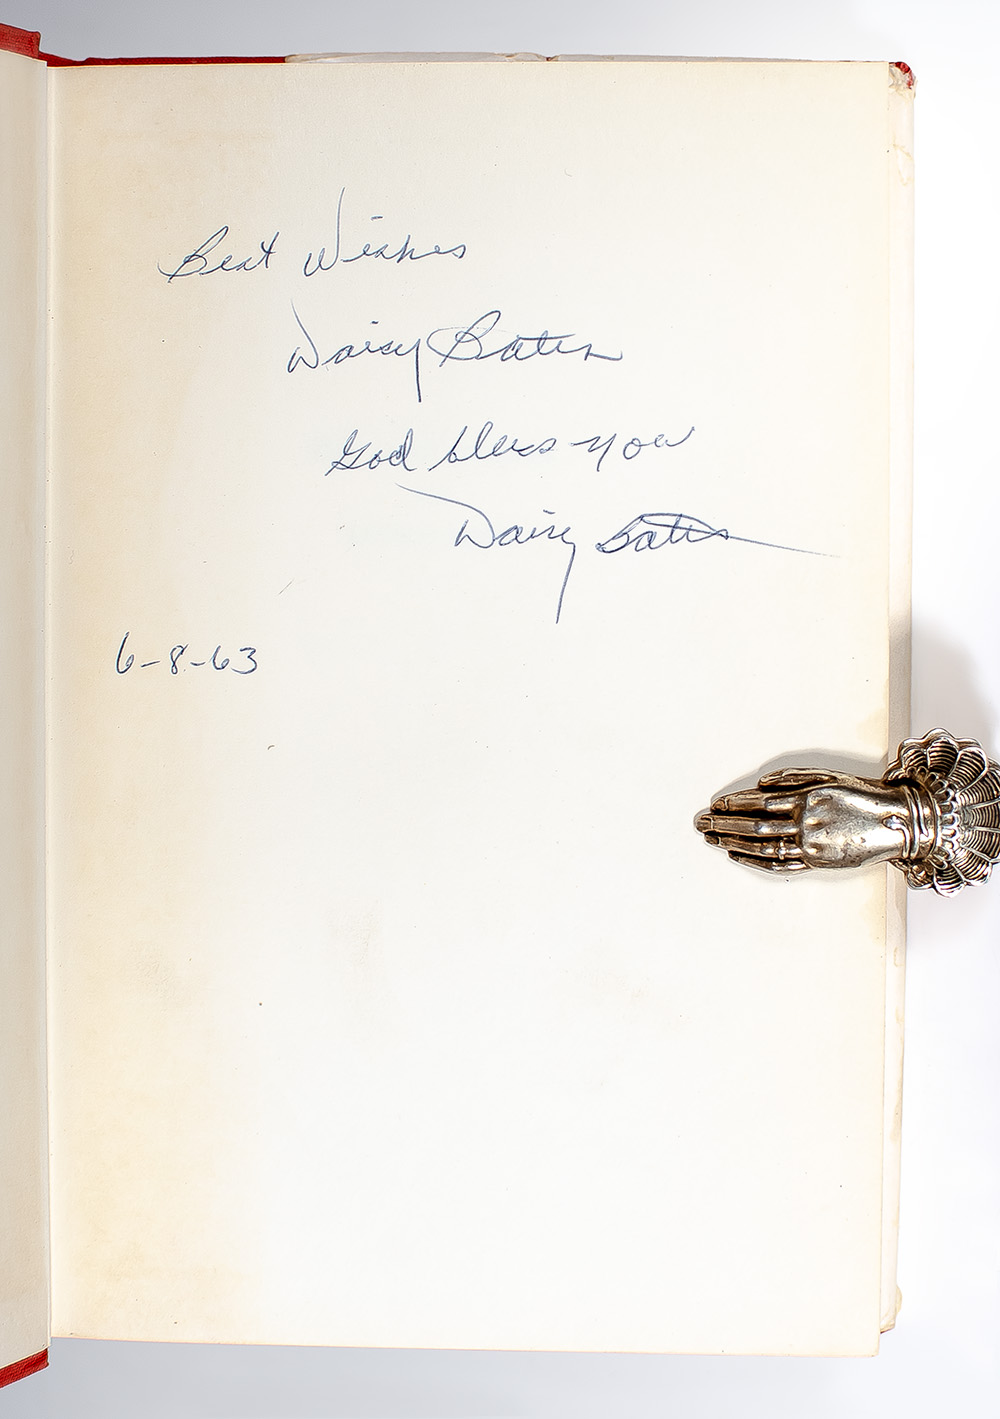 Best Wishes
Daisy Bates
God bless you
Daisy Bates
6-8-63